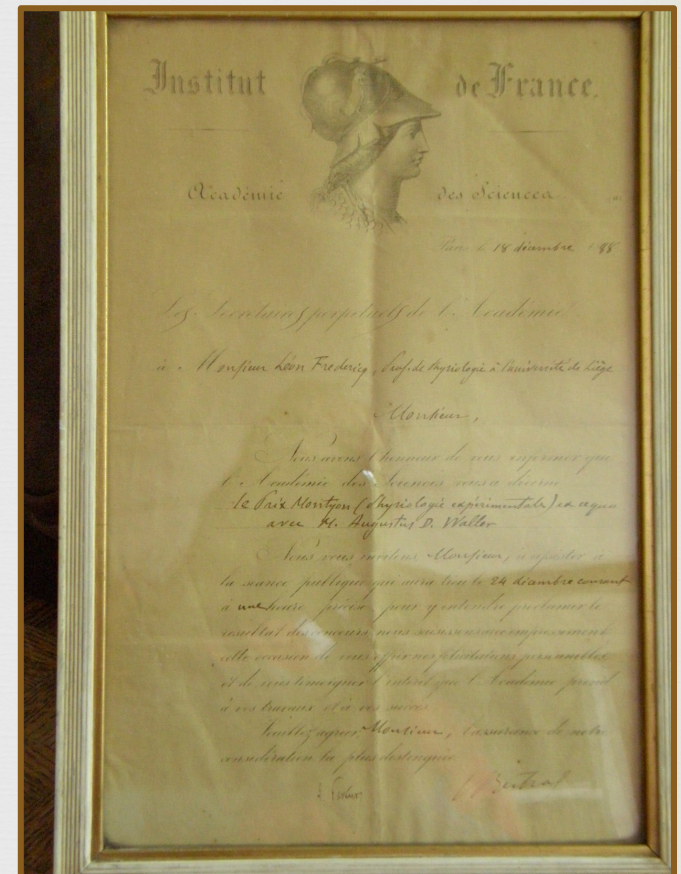 Institut de France.
Académie des Sciences
Paris, le 18 décembre 188
Les Secrétaires perpétuels de l'Académie
à Monsieur Léon Fredericq, Prof. de Physiologie à l'université de Liège
Monsieur,
Nous avons l'honneur de vous exprimer que
l'Académie des Sciences vous a décerné
le Prix Montyon (Physiologie expérimentale) ex aequo
avec M. Augustus D. Waller
Nous vous invitons Monsieur, à assister à
la séance publique qui aura lieu le 24 décembre courant
à une heure précise, pour y entendre proclamer le
résultat des concours nous
cette occasion de vous offrir nos félicitations personnelles
et de vous témoigner l'intérêt que l'Académie prend
à vos travaux et à vos succès.
Veuillez agréer, Monsieur, l'assurance de notre
considération la plus distinguée.